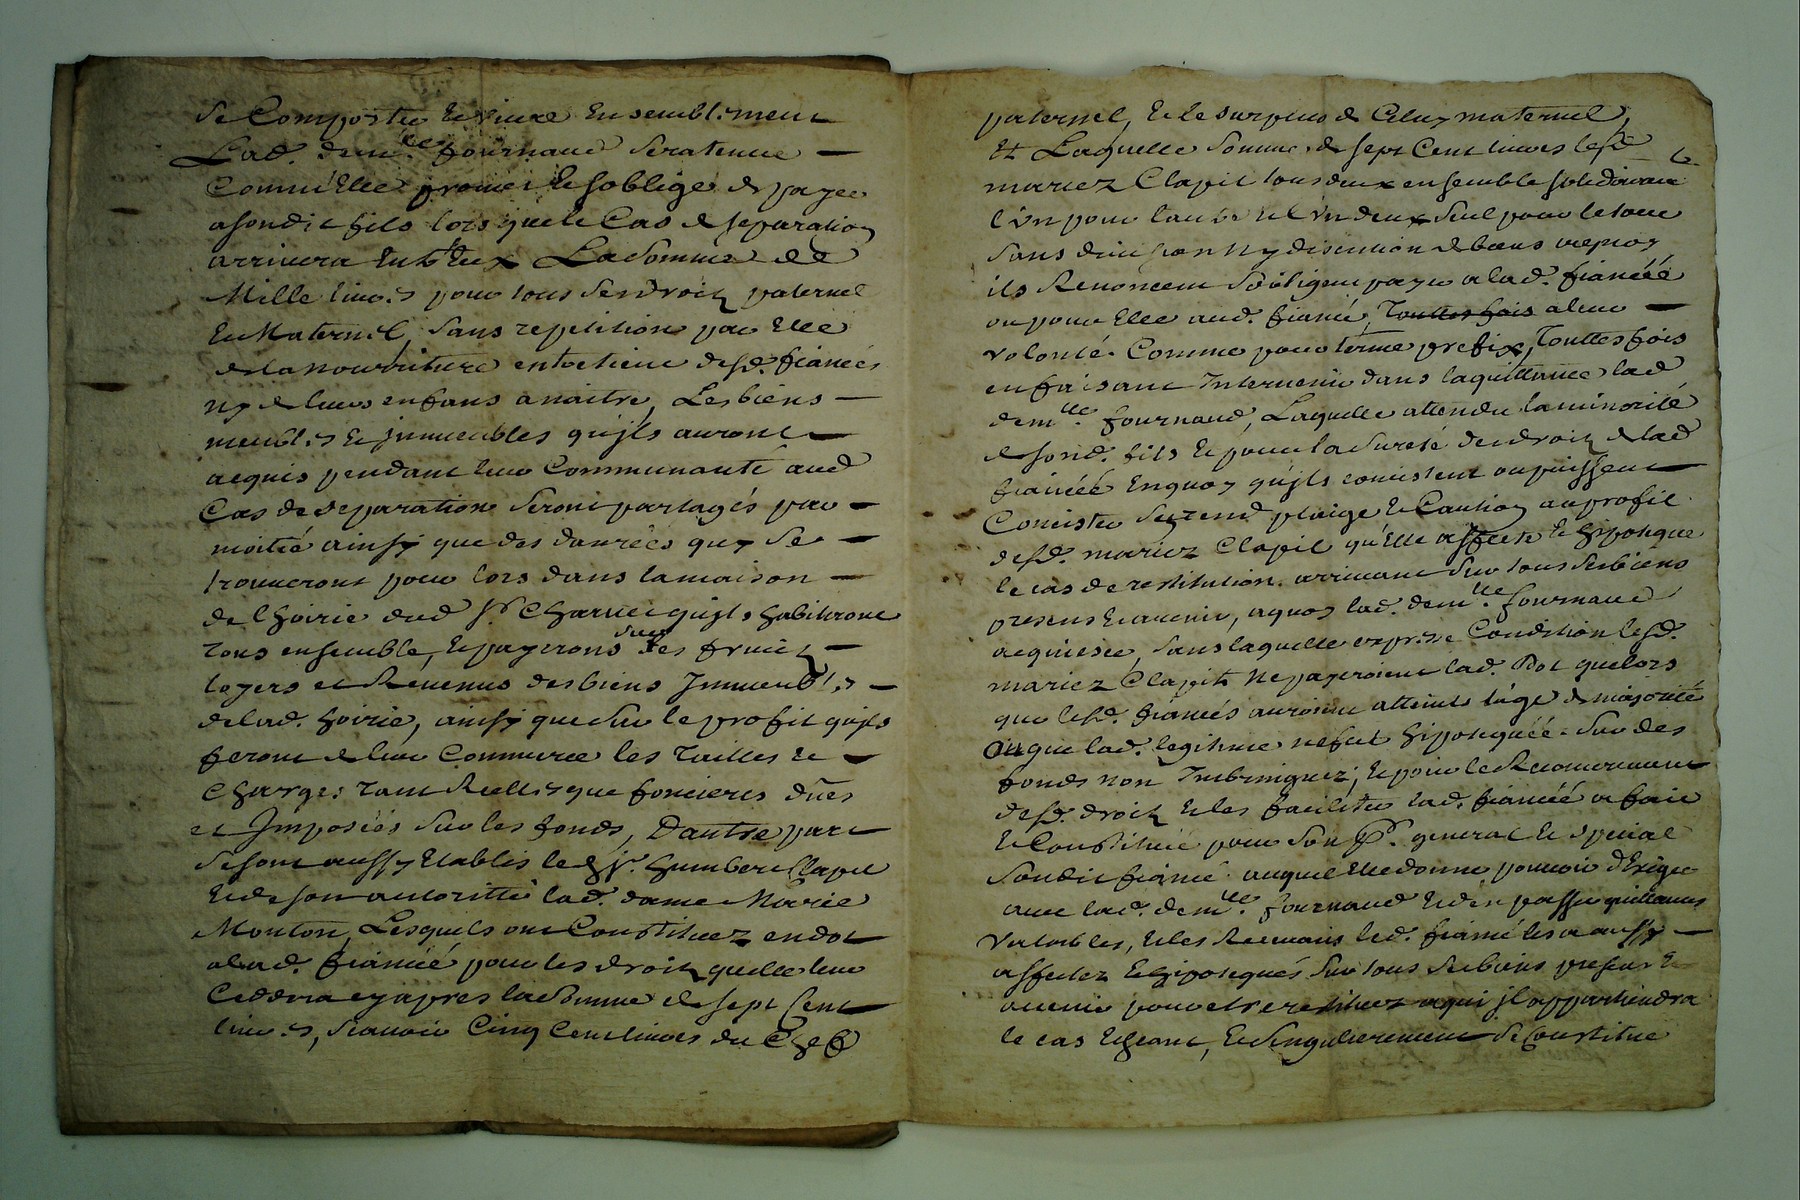 se Comporter Et vivre Ensemblement
Lad. dem.lle fournaud sera tenue
Comm'Elle promet Et soblige de payer
asondit fils lors que le Cas de separation
arrivera Entr'Eux La somme de
Mille livres pour tous ses droits paternel
Et Maternel, sans repetition par Elle
de la nourriture entretient desd. fiancés
ny de leurs enfans anaitre, Les biens
meubles et jmmeubles qu'jls auront
acquis pendant leur Communauté aud
Cas de separation seront partagés par
moitié ainsy que des danrées quy se
trouveront pour lors dans la maison
de l'hoirie dud sr. Charvet qu'jls habiteront
tous ensemble, Et payerons sur les fruits
loyers et Revenus des biens Jmmeubles
de lad. hoirie, ainsy que sur le profit qu'jls
feront de leur Commerce les Tailles et
Charges tant Reelles que foncieres dües
et Jmposées sur les fonds, D'autre part
se sont aussy Etablis led sr. humbert Clapit
Et de son autoritté lad. dame Marie
Monton, Lesquels ont Constituez en dot
a lad. fiancée pour les droits quelle leur
Ceddera cy apres la somme de sept Cent
livres, scavoir Cinq Cent livres du Chef
paternel, Et le surplus de Celuy maternel,
Et Laquelle somme de sept Cent livres lesd
mariez Clapit tous deux ensemble solidairement
l'un pour l'autre et l'un deux seul pour le tout
sans division ny discution de biens aquoy
ils Renoncent s'obligent payer a lad. fiancéé
ou pour Elle aud. fiancé, Touttes fois a leur
volonté Comme pour terme prefix, Touttes fois
en faisant Intervenir dans la quittance lad
dem.lle fournaud, Laquelle attendu la minorité
de sond. fils Et pour la sureté des droits de lad
fiancéé Enquoy qu'jls concistent ou puissent
Concister se rend plaige et Caution au profit
desd. mariez Clapit qu'Elle affecte Et hipoteque
le cas de restitution arrivant sur tous ses biens
presens Et avenir, aquoy lad. dem.lle fournaud
acquiesce, sans laquelle expresse Condition lesd.
mariez Clapit ne payeroient lad. Dot que lors
que lesd. fiancés auroint atteint lage de majorité
ou que lad. legitime ne fut hipotequéé sur des
fonds non Imbringuez; Et pour le Recouvrement
desd. droits Et les faciliter lad. fiancéé a fait
Et Constitué pour son pr. general Et special
sondit fiancé auquel Elle donne pouvoir d'Exiger
avec lad. dem.lle fournaud Et d'en passer quittances
valables, Et les Recevans led. fiancé les a aussy
affectez Et hipotequés sur tous ses biens presens Et
avenir pour etre restituez a qui jl appartiendra
le cas Echeant, Et singulierement se Constitue